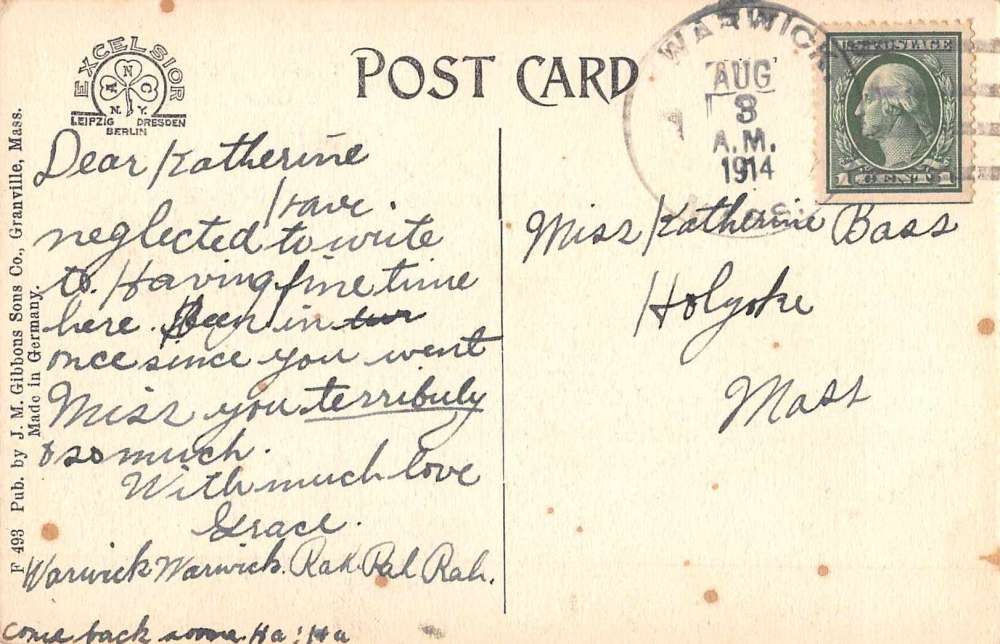 EXCELSIOR
A N C
N. Y.
LEIPZIG DRESDEN
BERLIN
POST CARD
WARWICK
AUG
3
A.M.
1914
U.S. POSTAGE
1 CENT 1
F 493 Pub. by J. M. Gibbons Sons Co., Granville, Mass.
Made in Germany.
Dear Katherine
I have
neglected to write
to. Having fine time
here. Been in
once since you went
Miss you terribuly
& so much.
With much love
Grace.
Warwick Warwick. Rah Rah Rah.
Come back soone. Ha! Ha
Miss Katherine Bass
Holyoke
Mass